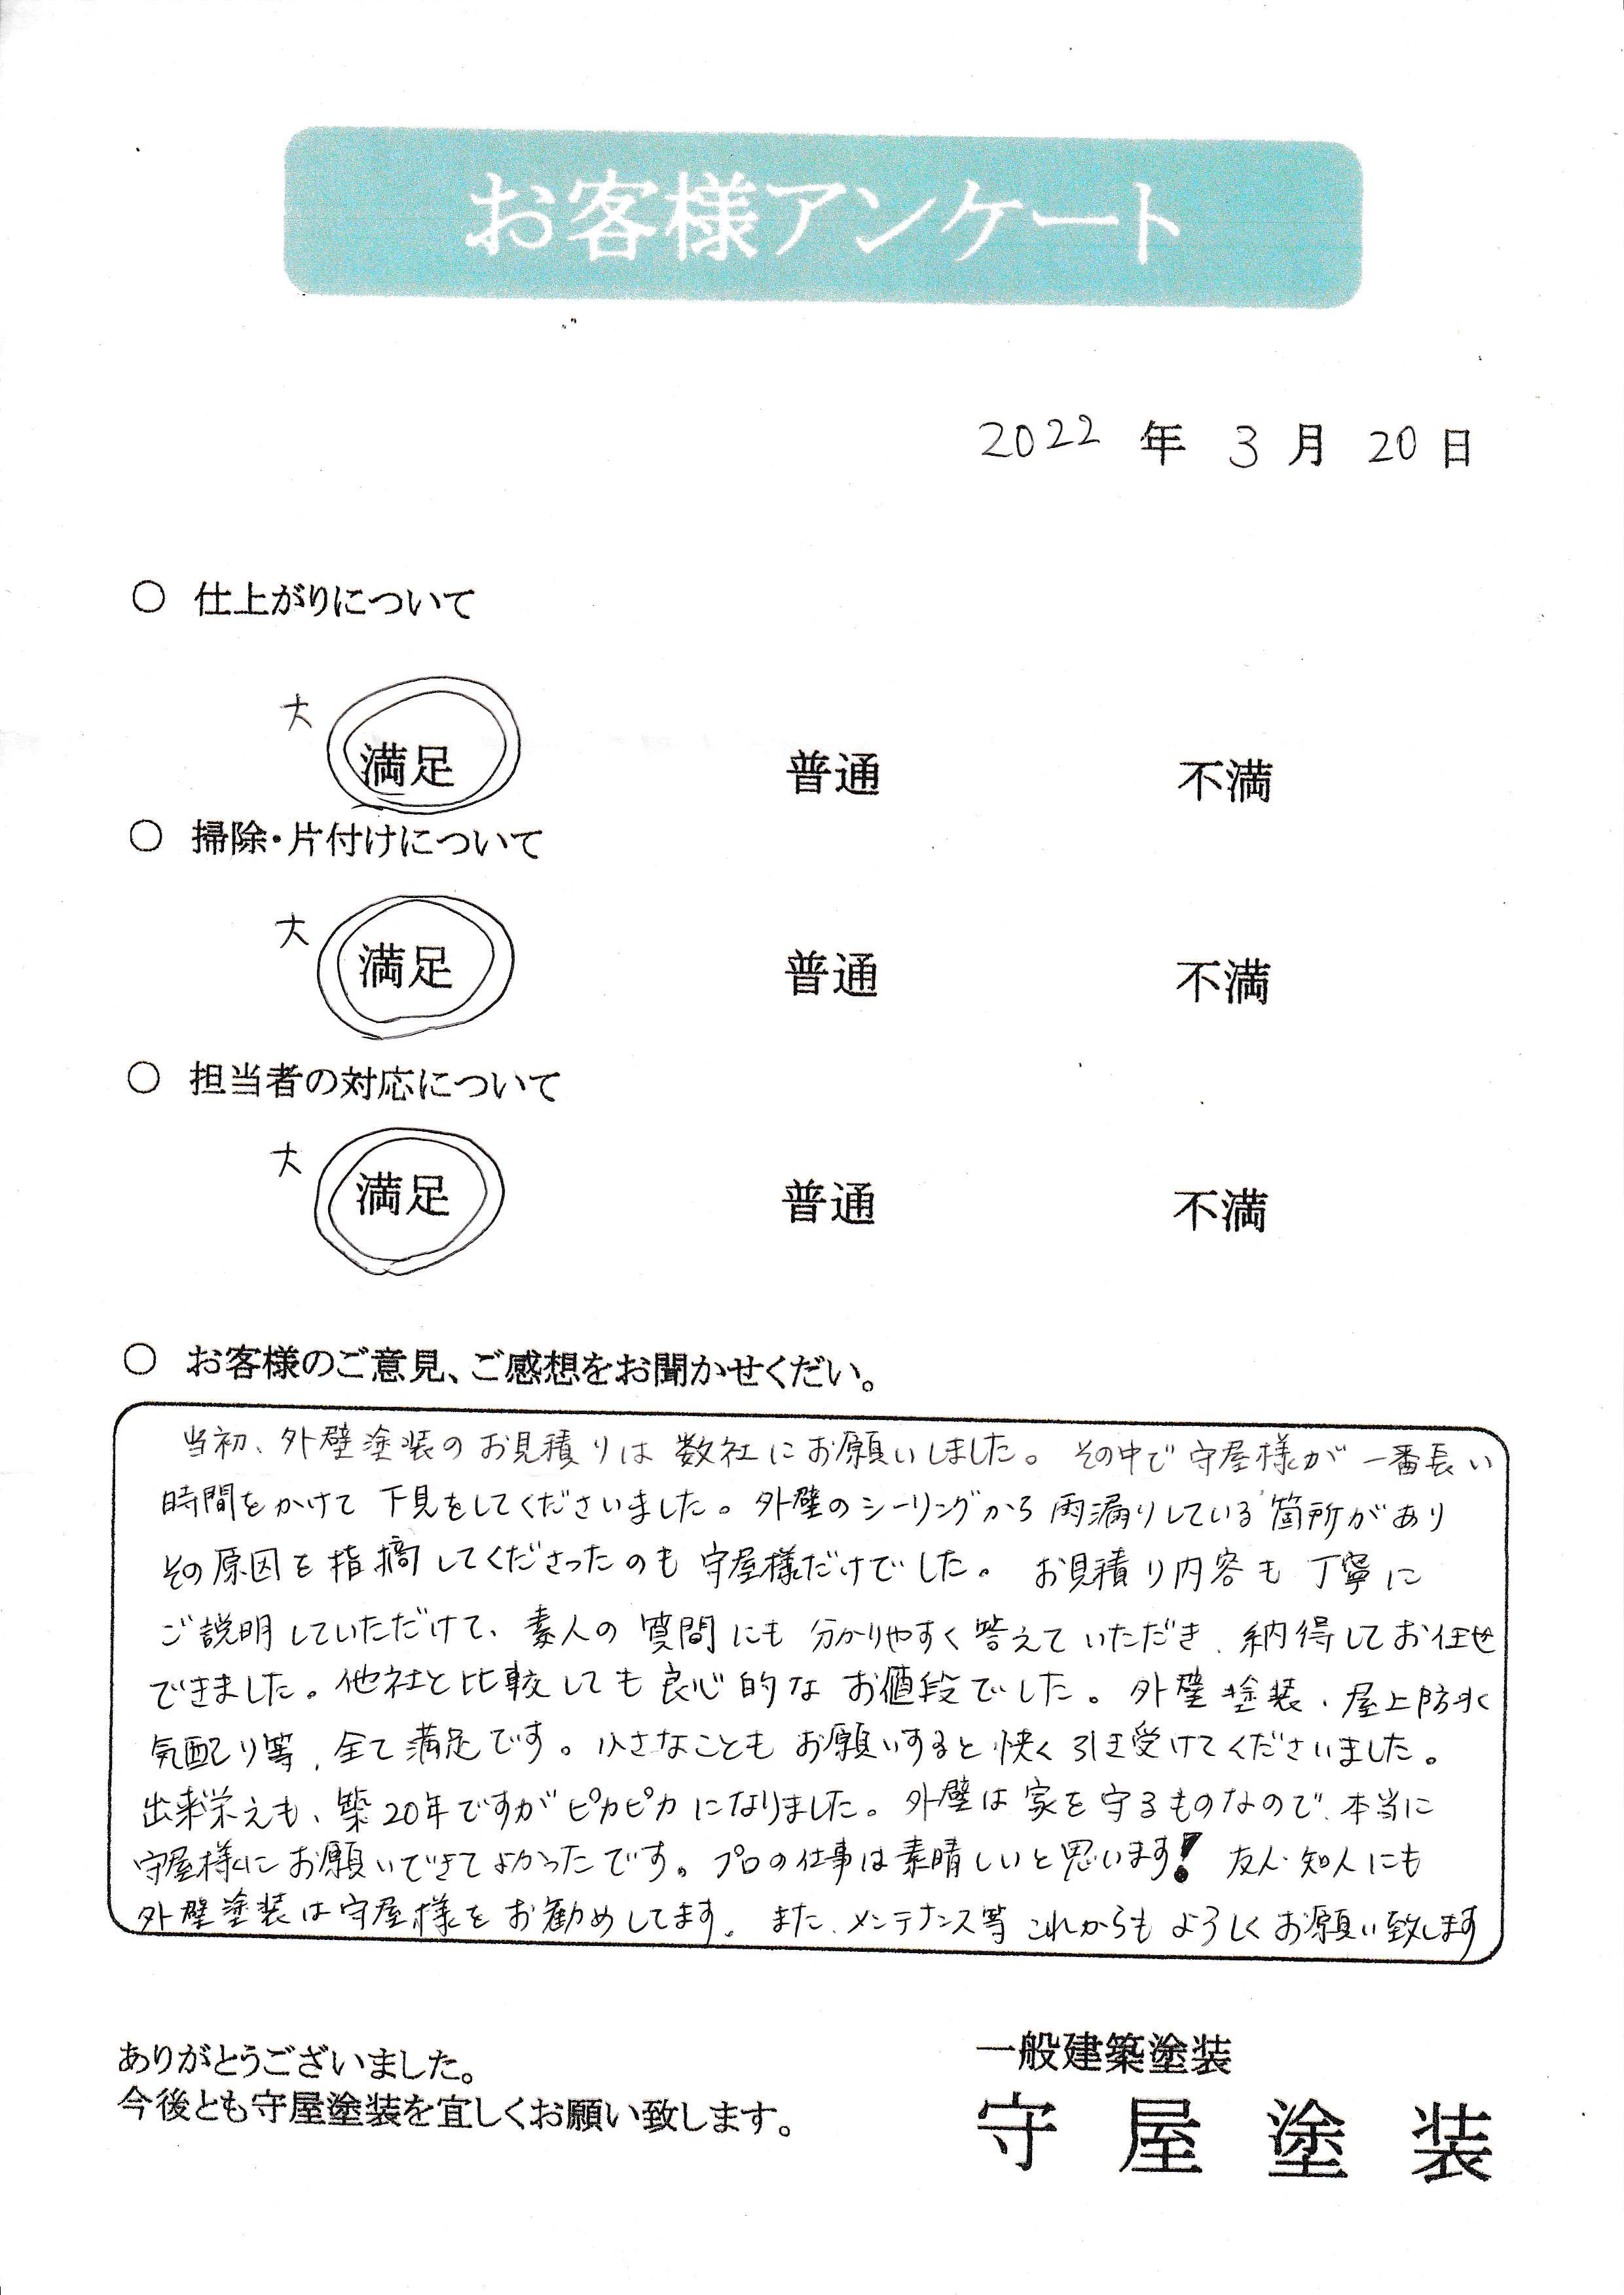 お客様アンケート
2022 年 3 月 20 日
○ 仕上がりについて
大 満足 普通 不満
○ 掃除・片付けについて
大 満足 普通 不満
○ 担当者の対応について
大 満足 普通 不満
○ お客様のご意見、ご感想をお聞かせくだい。
当初、外壁塗装のお見積りは数社にお願いしました。その中で守屋様が一番長い
時間をかけて下見をしてくださいました。外壁のシーリングから雨漏りしている箇所があり
その原因を指摘してくださったのも守屋様だけでした。お見積り内容も丁寧に
ご説明していただけて、素人の質問にも分かりやすく答えていただき、納得してお任せ
できました。他社と比較しても良心的なお値段でした。外壁塗装、屋上防水
気配り等、全て満足です。小さなこともお願いすると快く引き受けてくださいました。
出来栄えも、築20年ですがピカピカになりました。外壁は家を守るものなので、本当に
守屋様にお願いできてよかったです。プロの仕事は素晴しいと思います！友人・知人にも
外壁塗装は守屋様をお勧めしてます。また、メンテナンス等これからもよろしくお願い致します
ありがとうございました。
今後とも守屋塗装を宜しくお願い致します。
一般建築塗装
守屋塗装